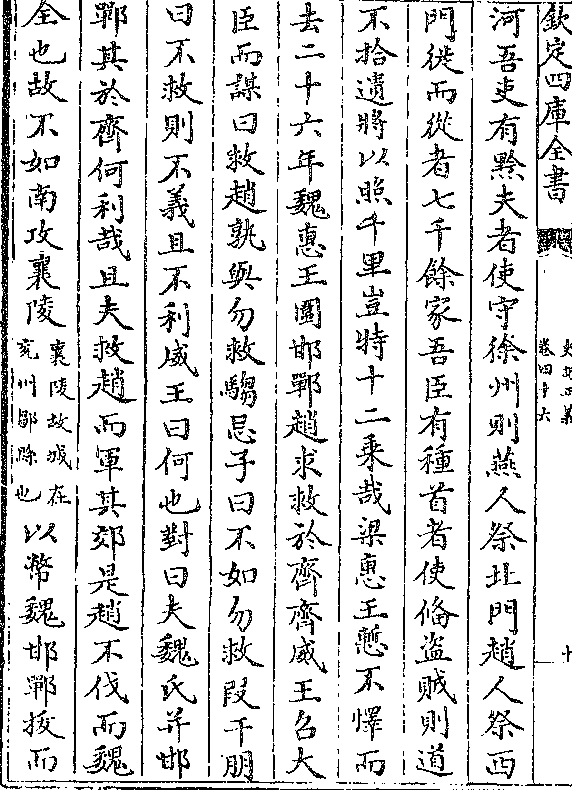 欽定四庫全書
史記正義
卷四十六
十
河吾吏有黔夫者使守徐州則燕人祭北門趙人祭西
門徙而從者七千餘家吾臣有種首者使俻盜賊則道
不拾遺將以照千里豈特十二乘哉梁惠王慙不懌而
去二十六年魏惠王圍邯鄲趙求救於齊齊威王召大
臣而謀曰救趙孰與勿救騶忌子曰不如勿救段干朋
曰不救則不義且不利威王曰何也對曰夫魏氏并邯
鄲其於齊何利哉且夫救趙而軍其郊是趙不伐而魏
全也故不如南攻襄陵襄陵故城在兖州鄒縣也以幣魏邯鄲拔而